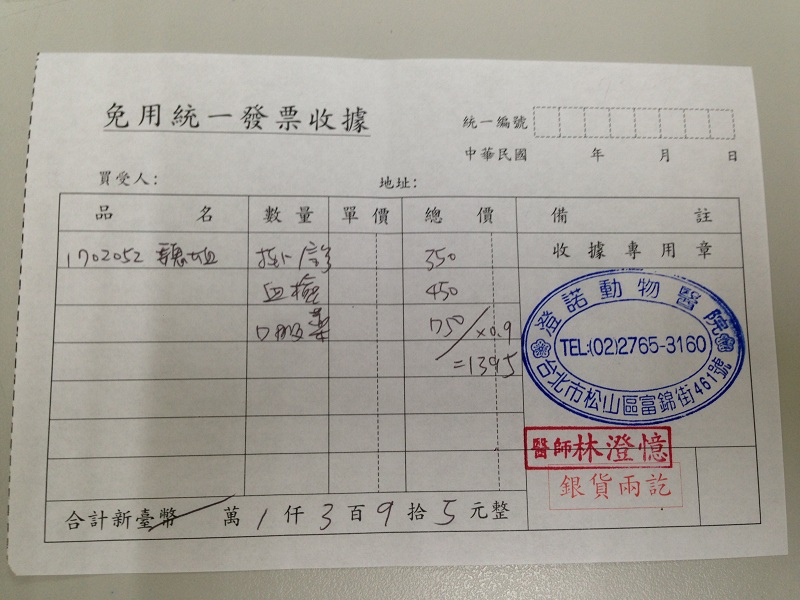 免用統一發票收據
統一編號
中華民國 年 月 日
買受人： 地址：
品名 數量 單價 總價 備註
1702052 掛診 350 收據專用章
血檢 450
口服藥 750 ×0.9
=1395
澄諾動物醫院
TEL:(02)2765-3160
台北市松山區富錦街461號
醫師林澄憶
銀貨兩訖
合計新臺幣 萬 1 仟 3 百 9 拾 5 元整